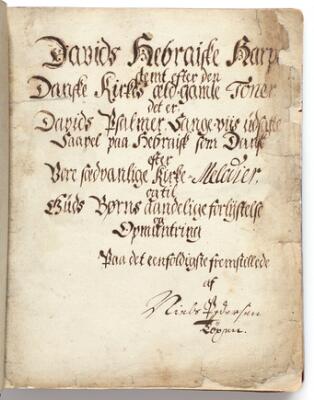 Davids Hebraiske Harpe
stemt efter den
Danske Kirkes æld-gamle Toner
det er
Davids Psalmer, Sange-viis udsatte
Saavel paa Hebraisk som Dansk
efter
Vore sædvanlige Kirke-Melodier,
til
Guds Børns aandelige forlystelse
og
Opmuntring
Paa det eenfoldigste fremstillede
af
Niels Pedersen